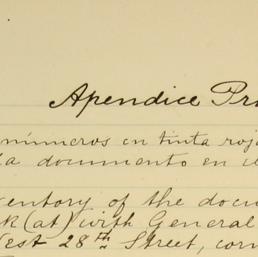 Apendice Pr
números en tinta roja
a documento en el
ventory of the docu
k (at) with General
West 28th Street, corn